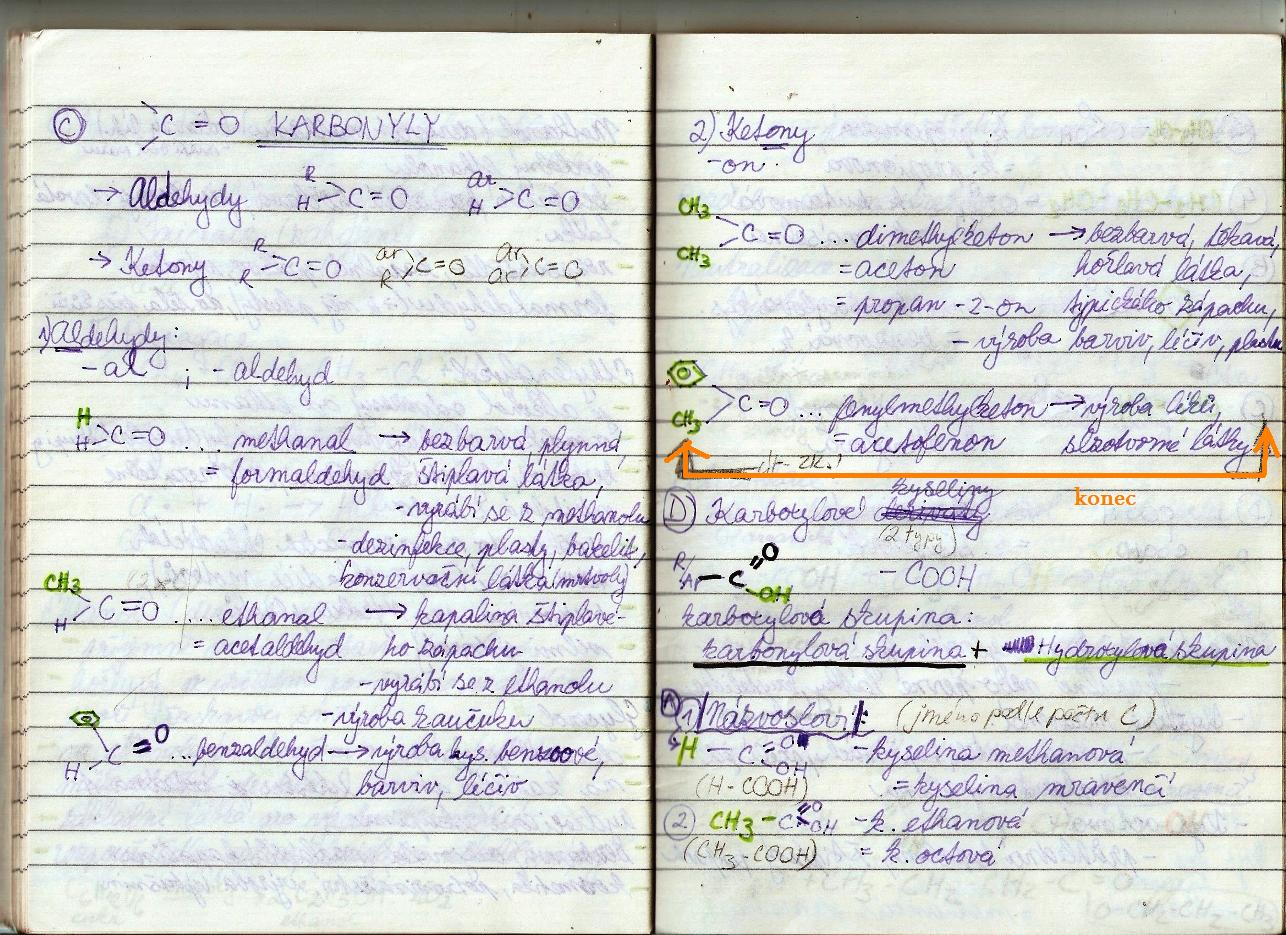 C) >C = O KARBONYLY
→ Aldehydy R H >C = O ar H >C = O
→ Ketony R R >C = O ar R >C = O ar ar >C = O
1) Aldehydy:
- al ; - aldehyd
H H >C = O ... methanal → bezbarvá, plynná,
= formaldehyd štiplavá látka,
- vyrábí se z methanolu
- dezinfekce, plasty, bakelit,
konzervační látka (mrtvoly)
CH3 H >C = O .... ethanal → kapalina štiplavé-
= acetaldehyd ho zápachu
- vyrábí se z ethanolu
- výroba kaučuku
H C = O ... benzaldehyd → výroba kys. benzoové,
barviv, léčiv
2) Ketony
- on
CH3 CH3 >C = O ... dimethylketon → bezbarvá, těkavá,
= aceton hořlavá látka,
= propan - 2 - on typického zápachu,
- výroba barviv, léčiv, plastů
CH3 >C = O ... fenylmethylketon → výroba léků,
= acetofenon slzotvorné látky
konec
D) Karboxylové kyseliny
(2 typy)
R/Ar - C = O OH - COOH
karboxylová skupina:
karbonylová skupina + Hydroxylová skupina
A
1) Názvosloví: (jméno podle počtu C)
H - C = O OH - kyselina methanová
(H - COOH) = kyselina mravenčí
2) CH3 - C = O OH - k. ethanová
(CH3 - COOH) = k. octová